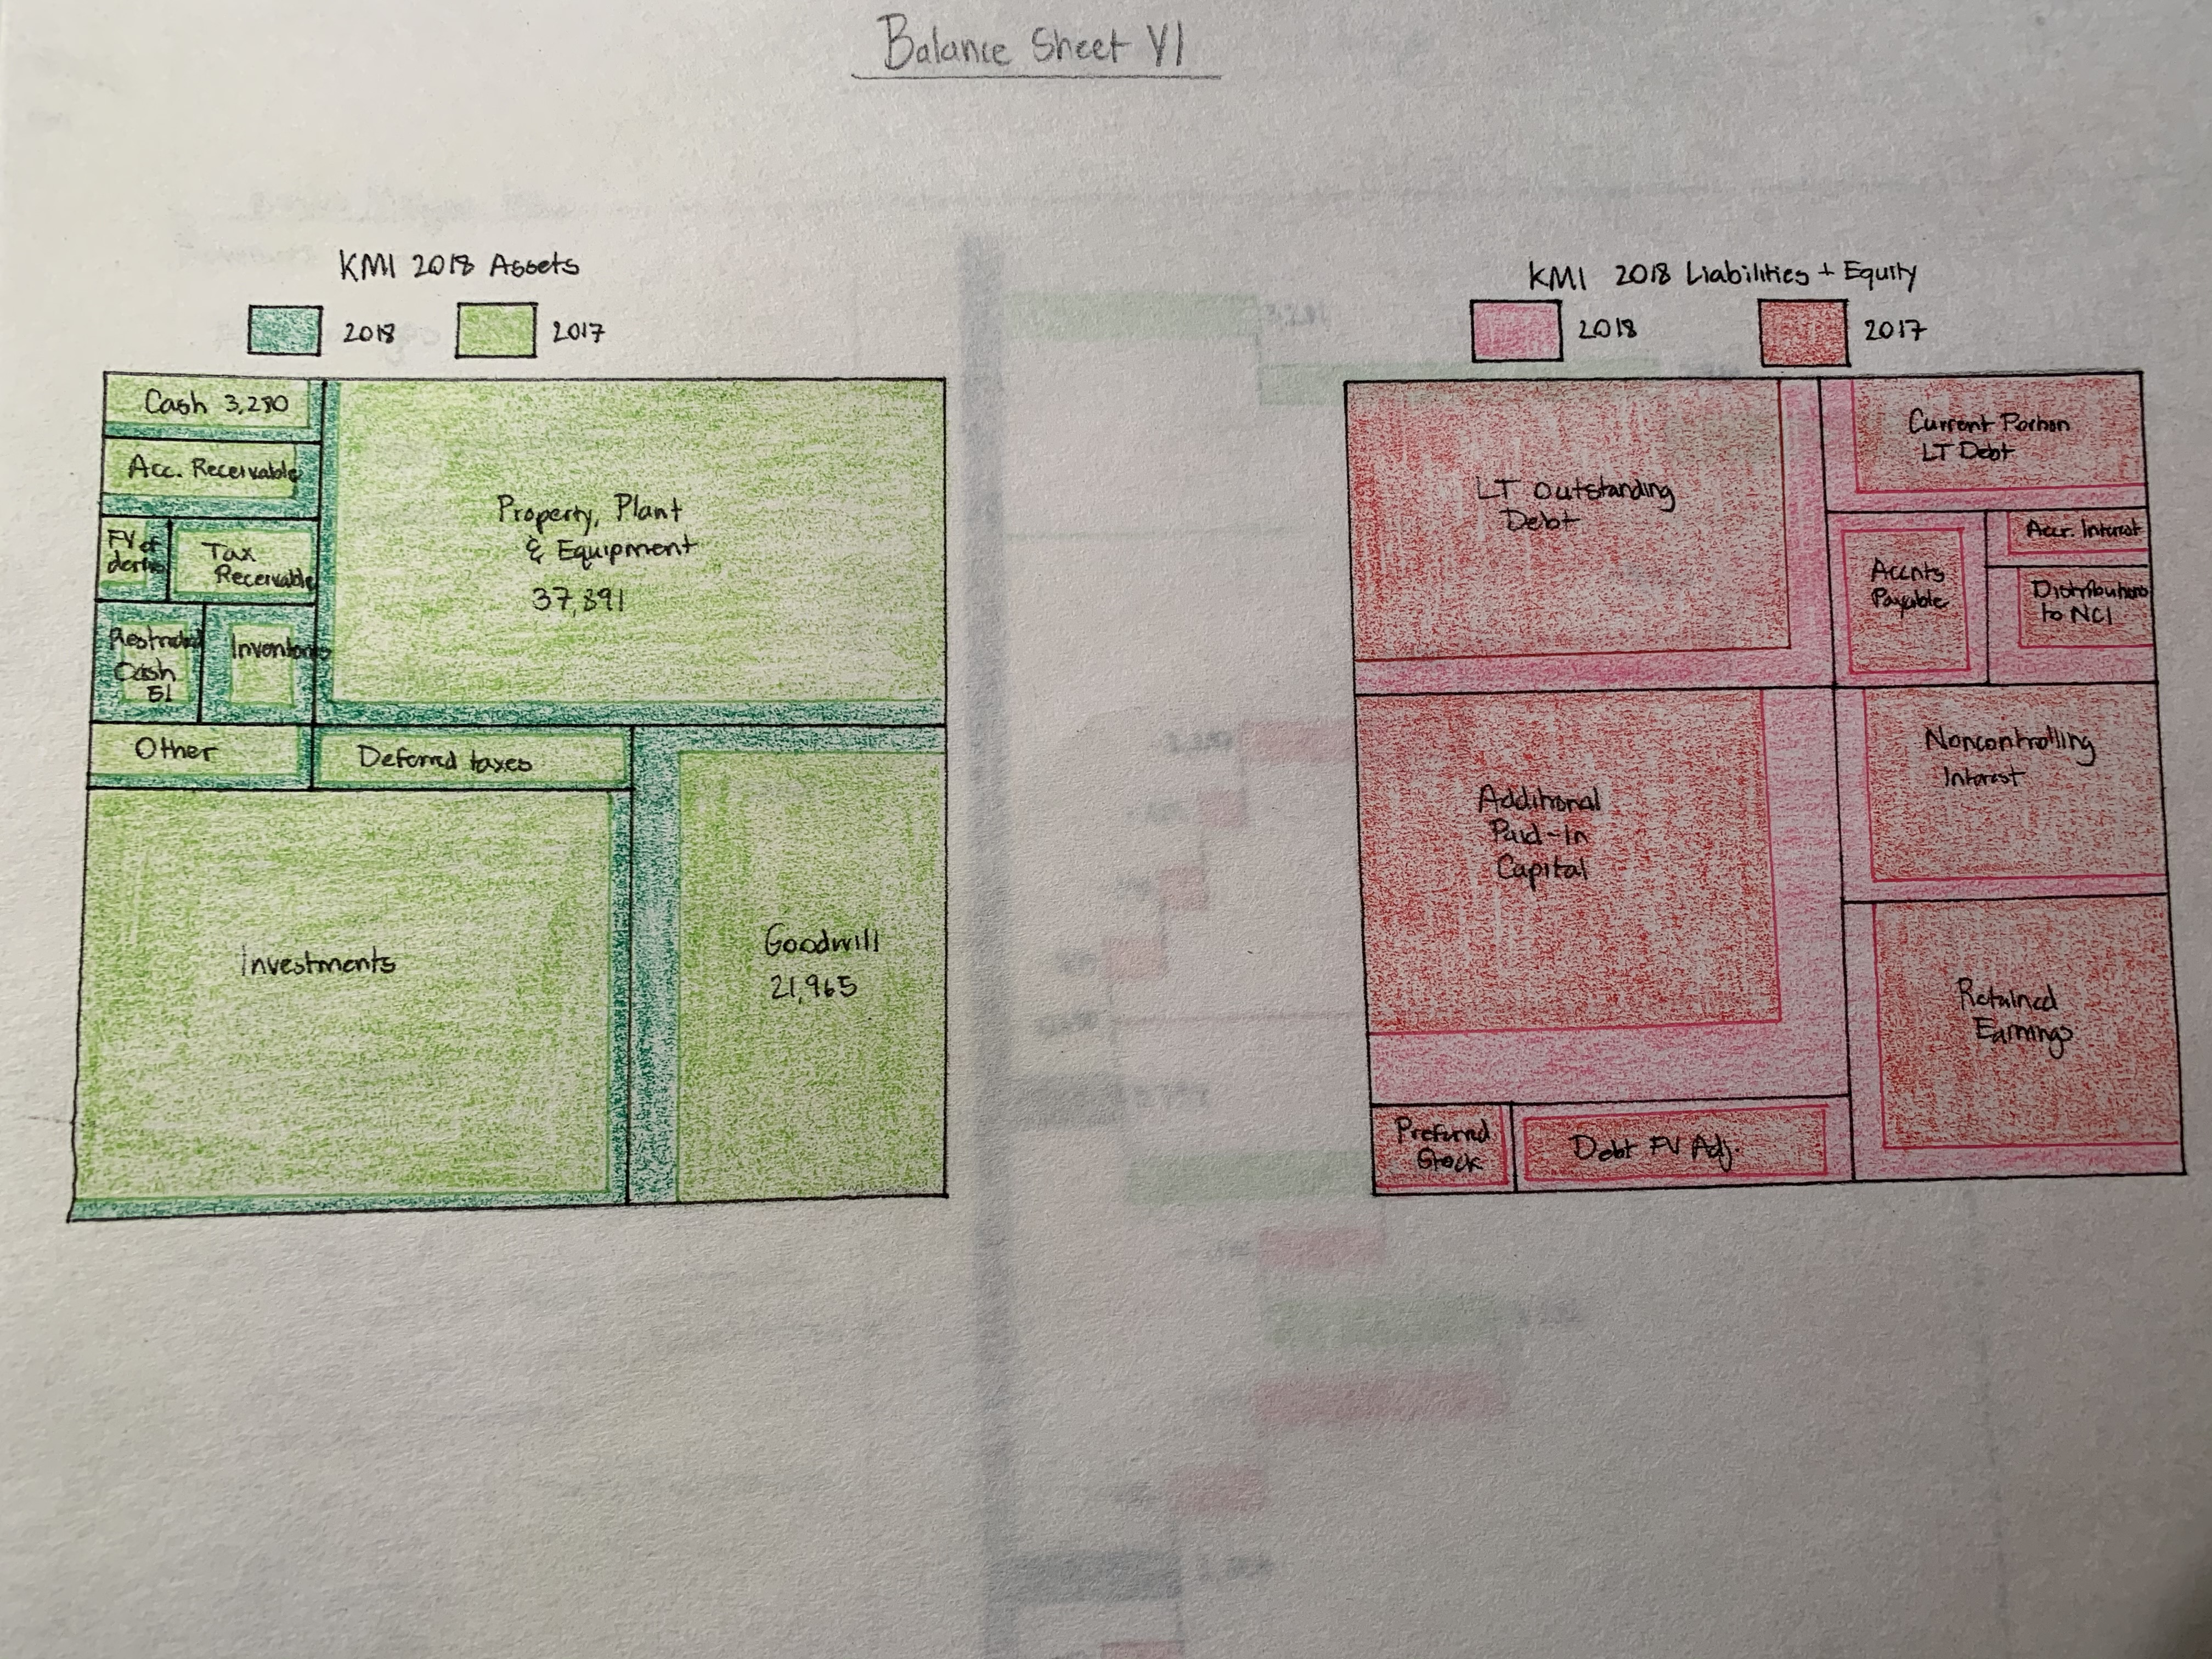 Balance Sheet V1
KMI 2018 Assets
2018
2017
Cash 3,280
Acc. Receivable
FV of
deriv
Tax
Receivable
Restricted
Cash
51
Inventories
Property, Plant
& Equipment
37,891
Other
Deferred taxes
Investments
Goodwill
21,965
KMI 2018 Liabilities + Equity
2018
2017
LT Outstanding
Debt
Current Portion
LT Debt
Accnts
Payable
Accr. Interest
Distributions
to NCI
Additional
Paid-In
Capital
Noncontrolling
Interest
Preferred
Stock
Debt FV Adj.
Retained
Earnings